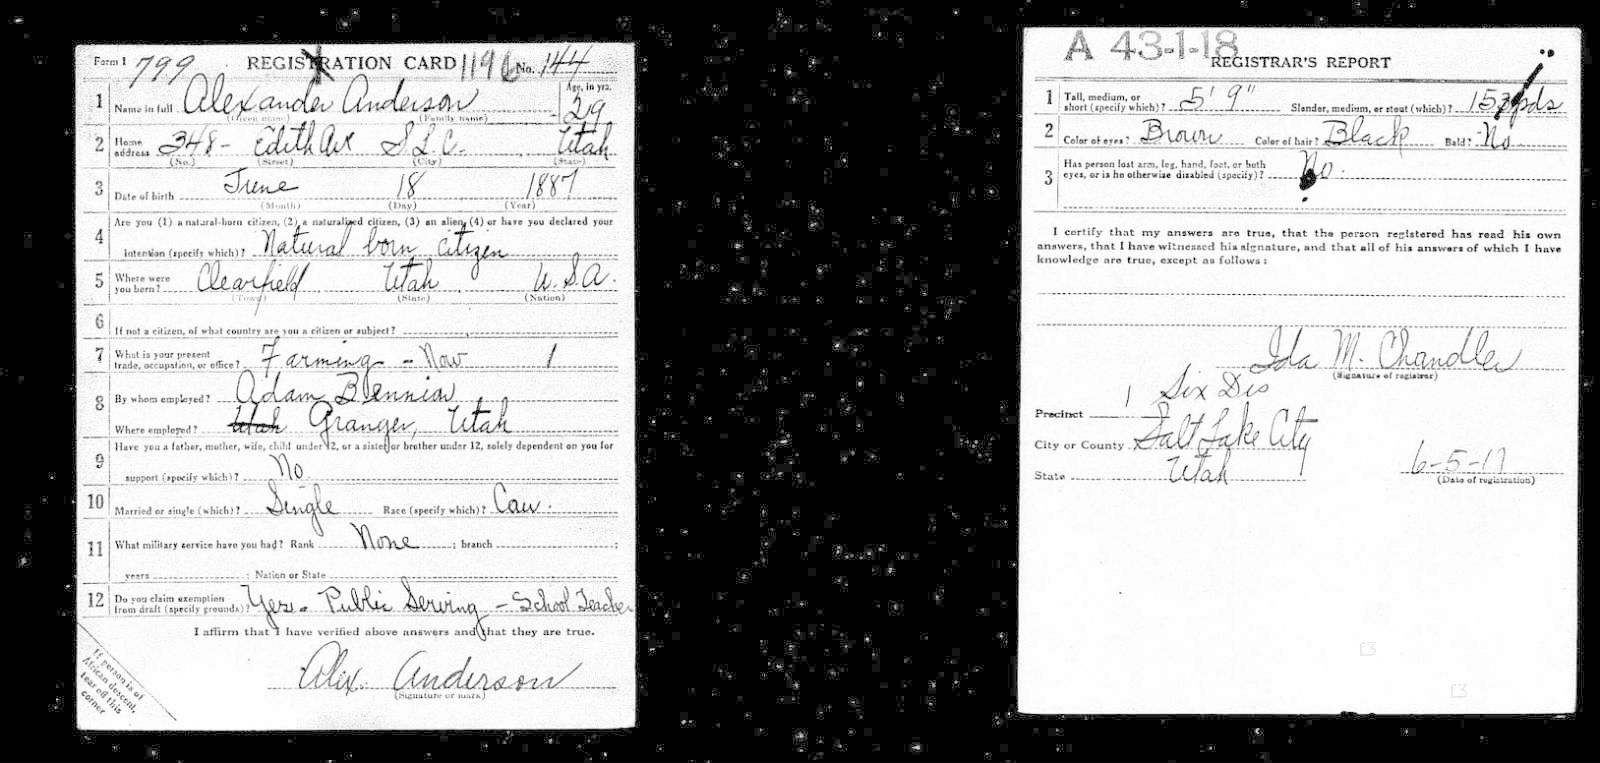 Form 1 799 REGISTRATION CARD 1196 No. 144
1 Name in full Alexander Anderson Age, in yrs. 29
(Given name) (Family name)
2 Home address 348- Edith Ave S L C. Utah
(No.) (Street) (City) (State)
3 Date of birth June 18 1887
(Month) (Day) (Year)
4 Are you (1) a natural-born citizen, (2) a naturalized citizen, (3) an alien, (4) or have you declared your
intention (specify which)? Natural born citizen
5 Where were you born? Clearfield Utah U.S.A.
(Town) (State) (Nation)
6 If not a citizen, of what country are you a citizen or subject?
7 What is your present trade, occupation, or office? Farming - Now 1
8 By whom employed? Adam Bennion
Where employed? Utah Granger, Utah
9 Have you a father, mother, wife, child under 12, or a sister or brother under 12, solely dependent on you for
support (specify which)? No
10 Married or single (which)? Single Race (specify which)? Cau.
11 What military service have you had? Rank None ; branch ;
years ; Nation or State
12 Do you claim exemption from draft (specify grounds)? Yes. Public Serving - School Teacher
I affirm that I have verified above answers and that they are true.
Alex. Anderson
(Signature or mark)
If person is of African descent, tear off this corner
A 43-1-18
REGISTRAR'S REPORT
1 Tall, medium, or short (specify which)? 5' 9" Slender, medium, or stout (which)? pds
2 Color of eyes? Brown Color of hair? Black Bald? No
3 Has person lost arm, leg, hand, foot, or both eyes, or is he otherwise disabled (specify)? No.
I certify that my answers are true, that the person registered has read his own
answers, that I have witnessed his signature, and that all of his answers of which I have
knowledge are true, except as follows:
Ida M. Chandler
(Signature of registrar)
Precinct 1 Six Dis
City or County Salt Lake City
State Utah 6-5-17
(Date of registration)